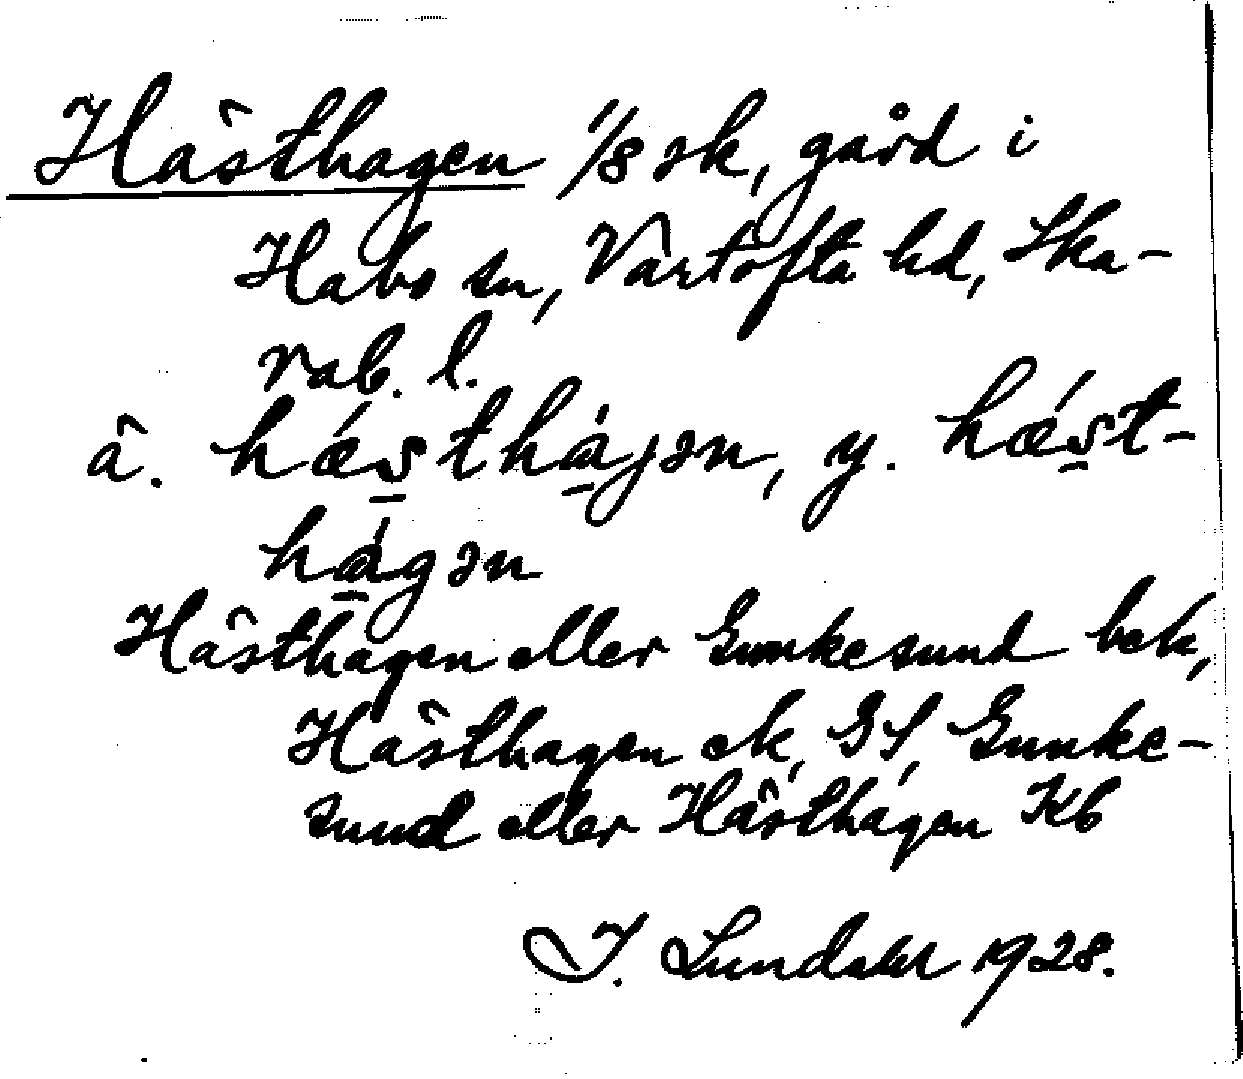 Hästhagen 1/8 sk, gård i
Habo sn, Vartofta hd, Ska-
rab. l.
ä. hǽsthájən, y. hǽst-
hágən
Hästhagen eller Gunkesund bek,
Hästhagen ek, GS, Gunke-
sund eller Hästhagen Kb
I. Lundahl 1928.